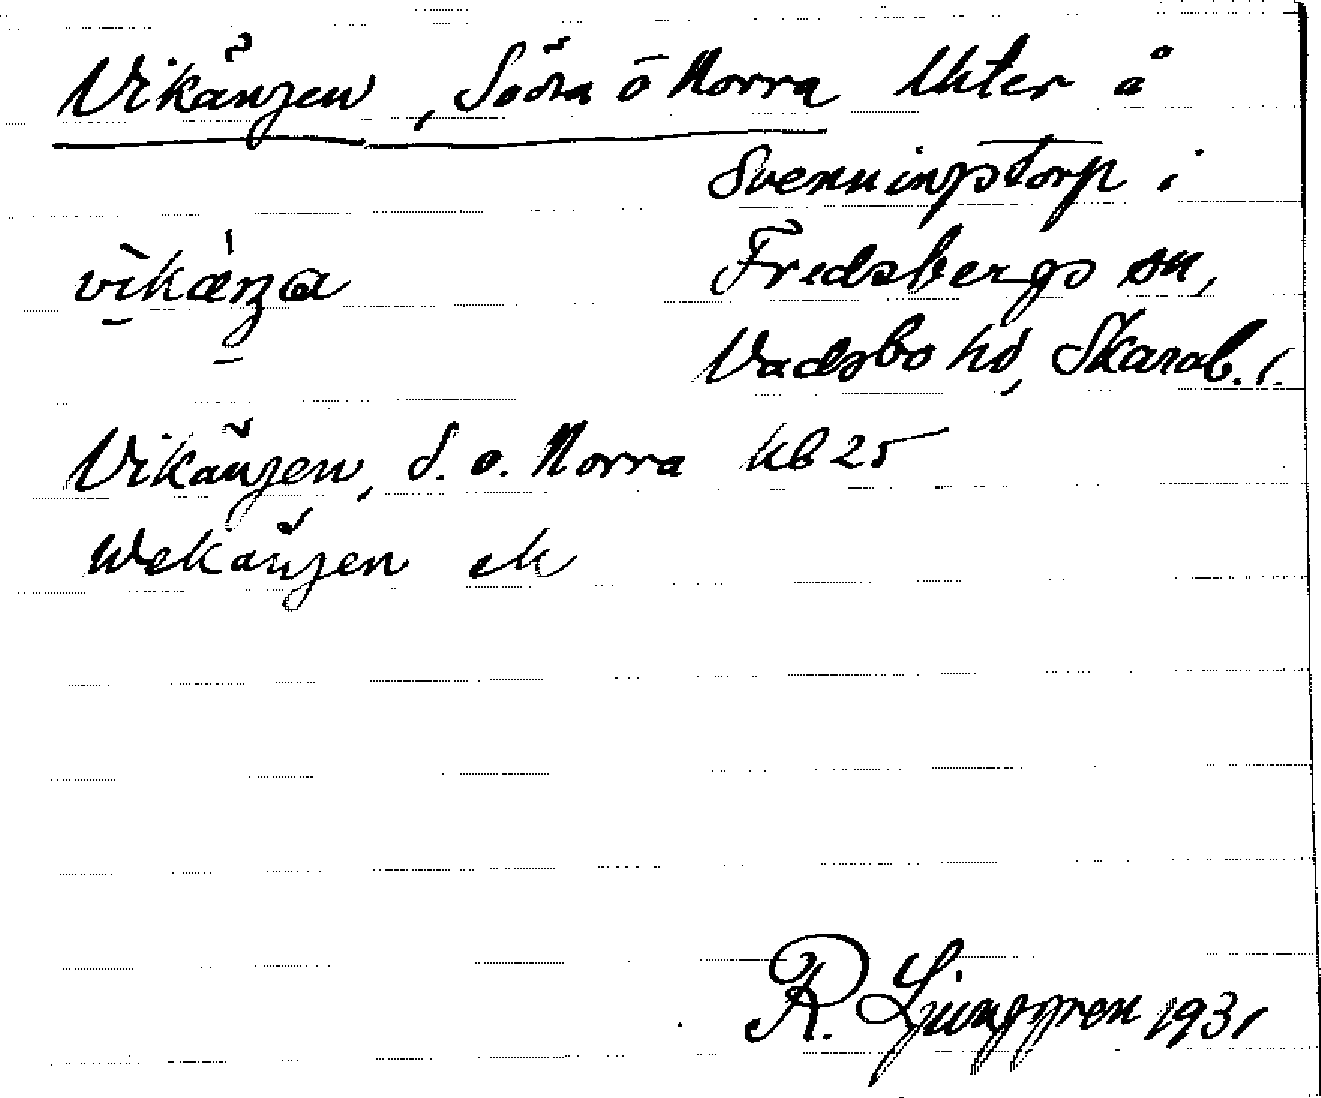 Vikängen, Södra o Norra Åkter å
Svenningstorp i
Fredsbergs sn,
vikæŋa
Vadsbo hd, Skarab. l.
Vikängen, S. o. Norra kb 25
Wekängen ek
R. Ljunggren 1931